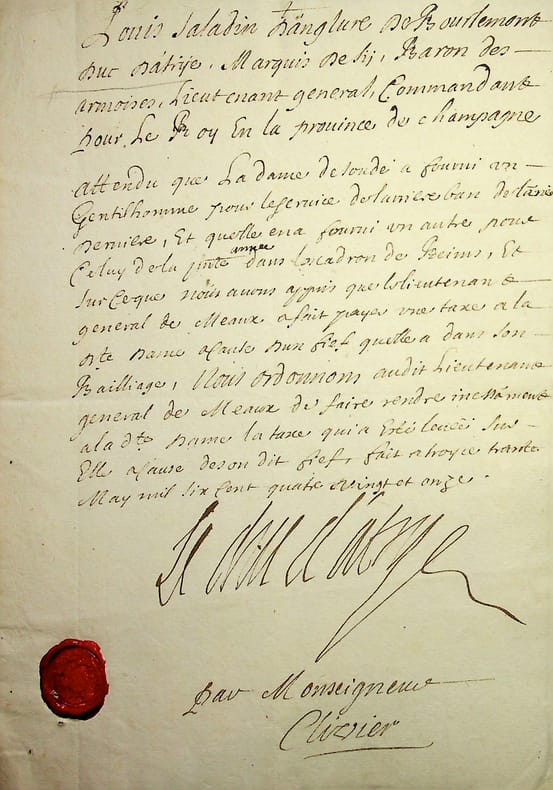 Louis Saladin d'anglure de Bourlemont
Duc d'atrije, Marquis de Sij, Baron des
armoises, Lieutenant general, Commandant
pour Le Roy En la province de champagne
attendu que La dame de Soudé a fourni un
Gentilhomme pour leservice de larriere ban de lannée
derniere, Et quelle ena fourni un autre, pour
Celuy de la pnte année dans lescadron de Reims, Et
Sur Ceque Nous avons appris que le lieutenant
general de Meaux afait payer une taxe a la
dte dame acause dun fief quelle a dans son
Bailliage, Nous ordonnons audit Lieutenant
general de Meaux de faire rendre incessament
ala dte dame la taxe qui a Esté Leveé sur
Elle acause deson dit fief, fait atroye trante
May mil six Cent quatre Vingt et onze.
Le duc d'atrye
Par Monseigneur